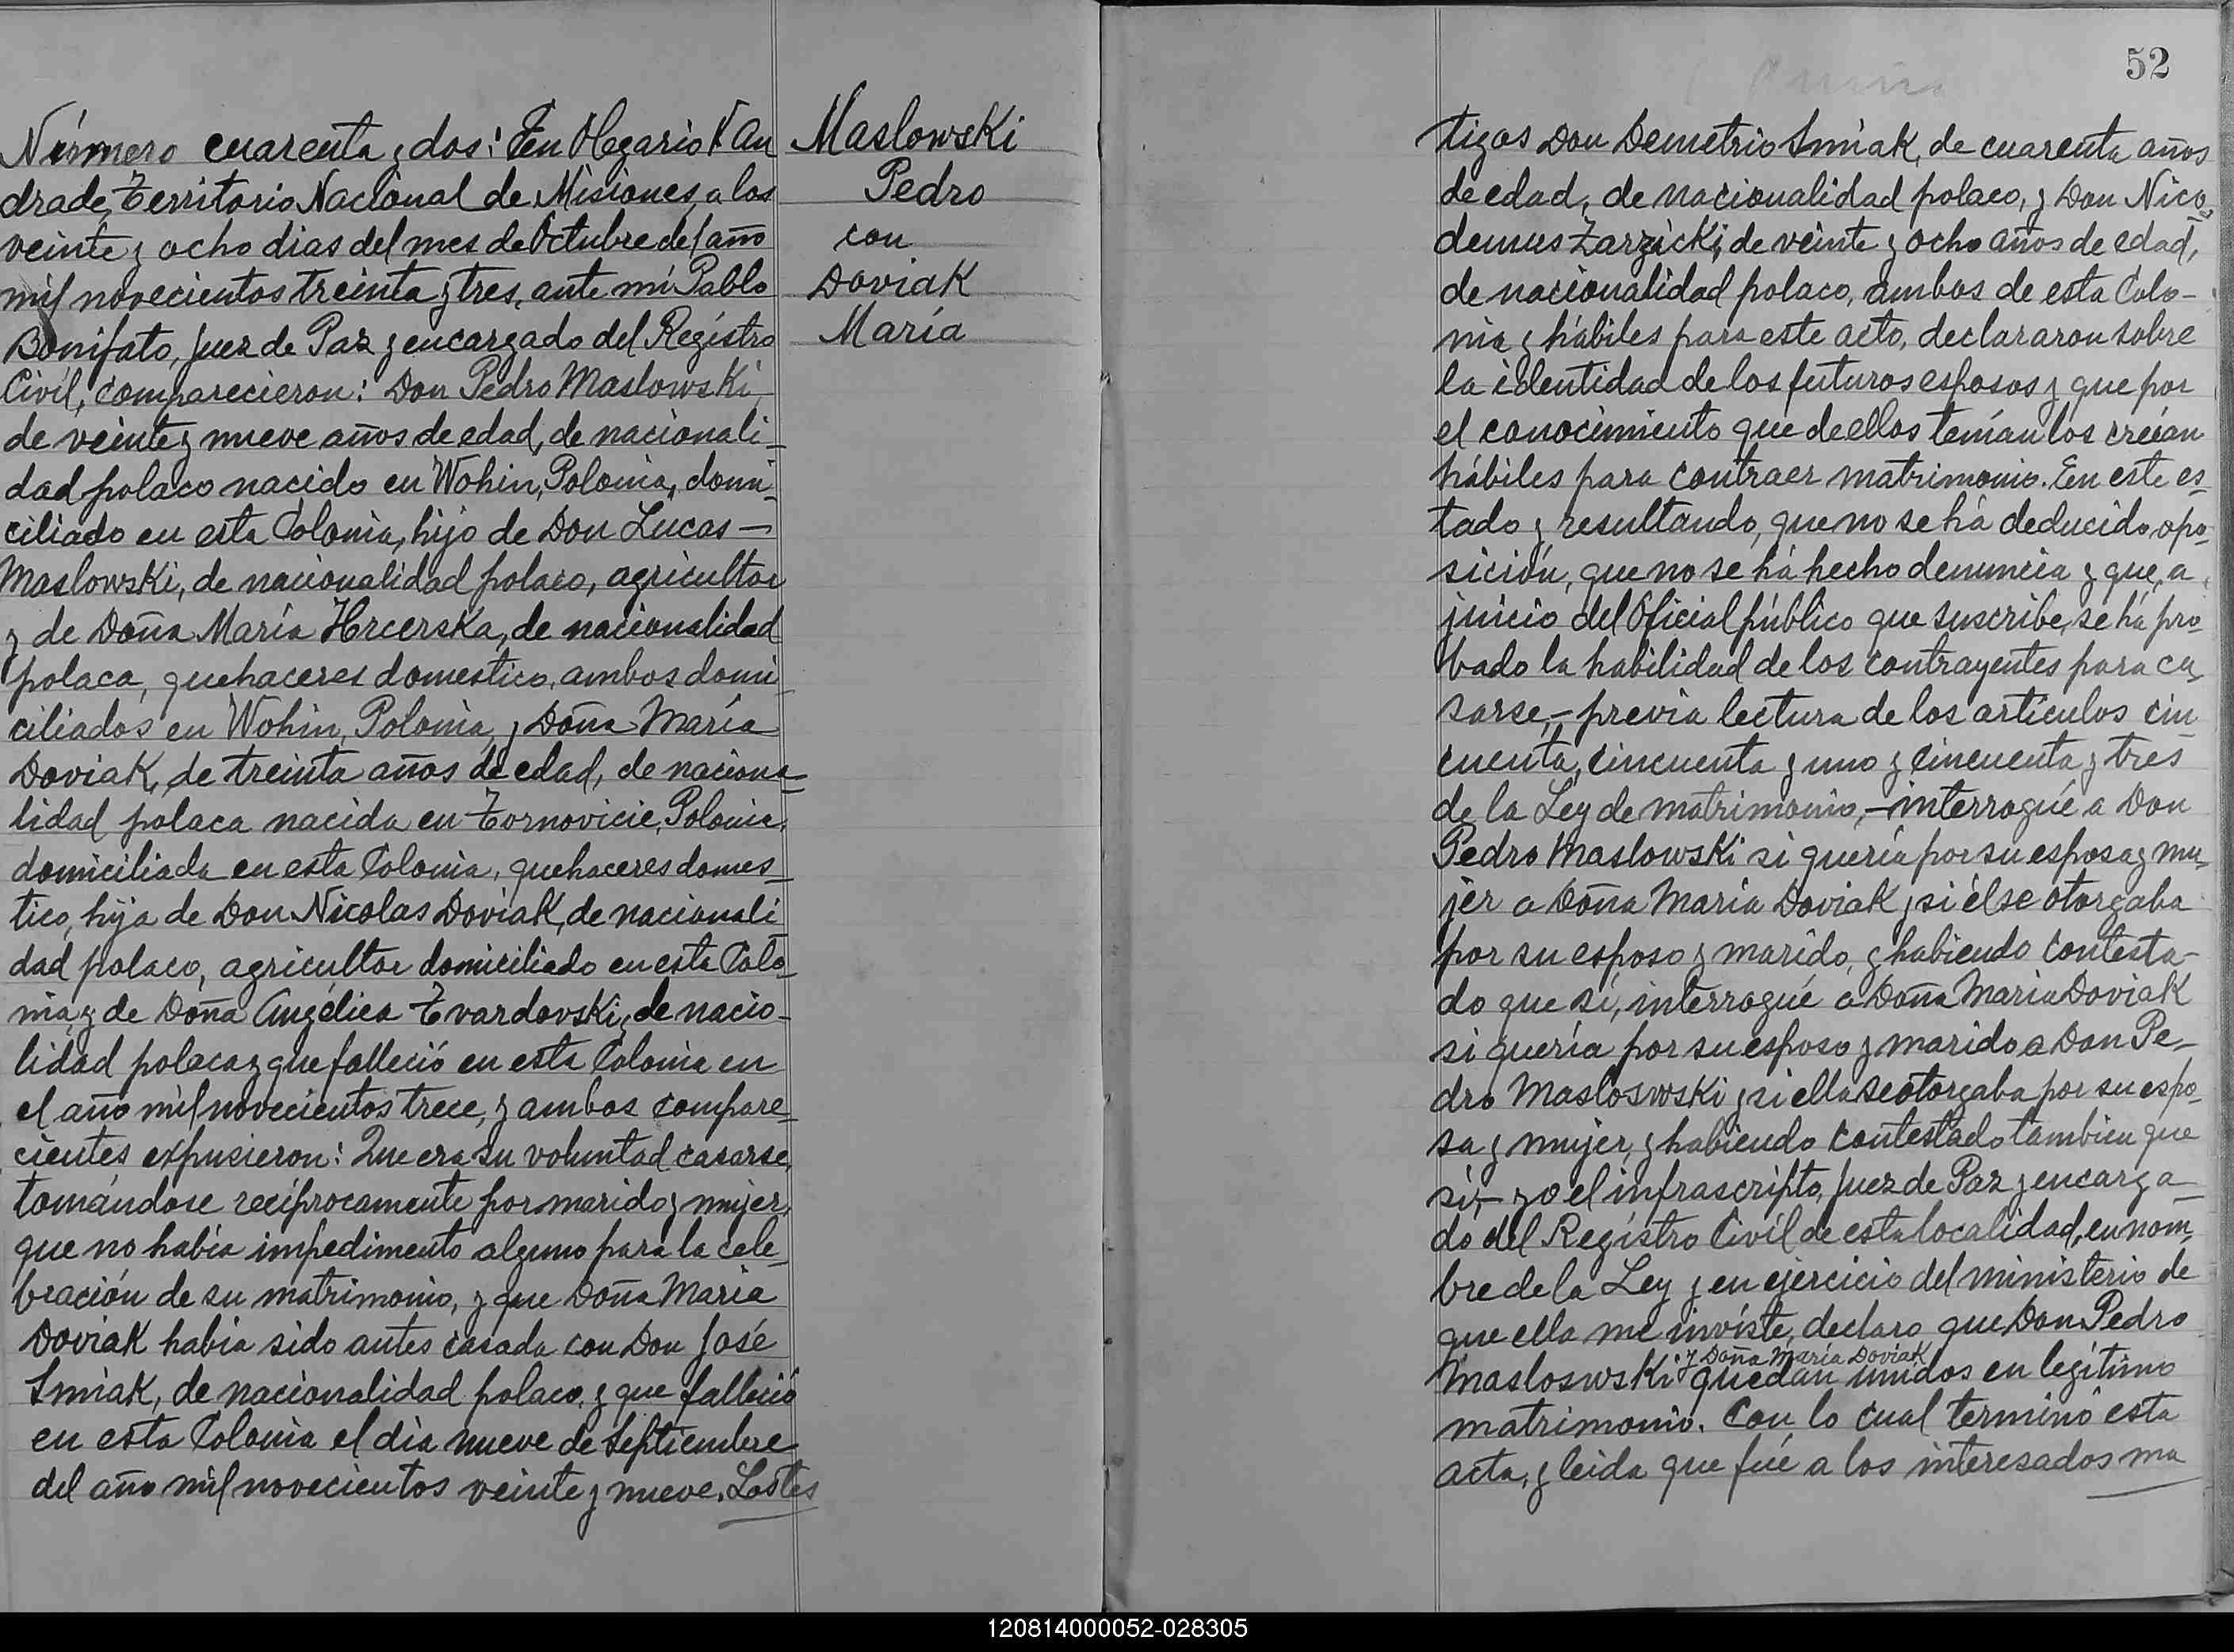 Número cuarenta y dos: En Olegario V An
drade, Territorio Nacional de Misiones, a los
veinte y ocho dias del mes de Octubre del año
mil novecientos treinta y tres, ante mí Pablo
Bonifato, Juez de Paz y encargado del Regístro
Civíl, comparecieron: Don Pedro Maslowski,
de veinte y nueve años de edad, de nacionali-
dad polaco nacido en Wohin, Polonia, domi-
ciliado en esta Colonia, hijo de Don Lucas —
Maslowski, de nacionalidad polaco, agricultor
y de Doña María Hrcerska, de nacionalidad
polaca, quehaceres domestico, ambos domi-
ciliados en Wohin, Polonia, y Doña María
Doviak, de treinta años de edad, de naciona-
lidad polaca nacida en Tornovicie, Polonia,
domiciliada en esta Colonia, quehaceres domes-
tico, hija de Don Nicolas Doviak, de nacionali-
dad polaco, agricultor domiciliado en esta Colo-
nia, y de Doña Angélica Tvardovski, de nacio-
lidad polaca y que falleció en esta Colonia en
el año mil novecientos trece, y ambos compare-
cientes expusieron: Que era su voluntad casarse,
tomándose recíprocamente por marido y mujer,
que no había impedimento alguno para la cele-
bración de su matrimonio, y que Doña María
Doviak había sido antes casada con Don José
Smiak, de nacionalidad polaco, y que falleció
en esta Colonia el día nueve de Septiembre
del año mil novecientos veinte y nueve. Los tes
Maslowski
Pedro
con
Doviak
María
52
tigos Don Demetrio Smiak, de cuarenta años
de edad, de nacionalidad polaco, y Don Nico-
demus Zarzicki, de veinte y ocho años de edad,
de nacionalidad polaco, ambos de esta Colo-
nia y hábiles para este acto, declararon sobre
la identidad de los futuros esposos y que por
el conocimiento que de ellos tenían los creían
hábiles para contraer matrimonio. En este es-
tado y resultando, que no se há deducido opo-
sición, que no se há hecho denuncia y que, a
juicio del Oficial público que suscribe, se há pro-
bado la habilidad de los contrayentes para ca-
sarse,— previa lectura de los artículos cin-
cuenta, cincuenta y uno y cincuenta y tres
de la Ley de matrimonio,— interrogué a Don
Pedro Maslowski si quería por su esposa y mu-
jer a Doña María Doviak y si él se otorgaba
por su esposo y marido, y habiendo contesta-
do que sí, interrogué a Doña María Doviak
si quería por su esposo y marido a Don Pe-
dro Masloswski y si ella se otorgaba por su espo-
sa y mujer, y habiendo contestado tambien que
sí,— yo el infrascripto, Juez de Paz y encarga-
do del Regístro Civíl de esta localidad, en nom-
bre de la Ley y en ejercicio del ministerio de
que ella me invíste, declaro que Don Pedro
y Doña María Doviak
Masloswski quedan unídos en legítimo
matrimonio. Con lo cual terminó esta
acta, y leída que fué a los interesados ma
120814000052-028305